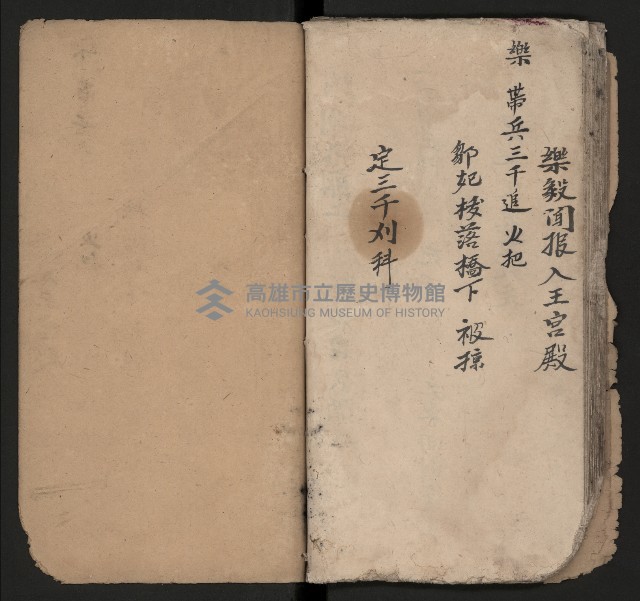 樂毅聞报入王宮殿
樂 帶兵三千進 火把
鄒妃梭落橋下 被掠
定三千刈科
高雄市立歷史博物館
KAOHSIUNG MUSEUM OF HISTORY